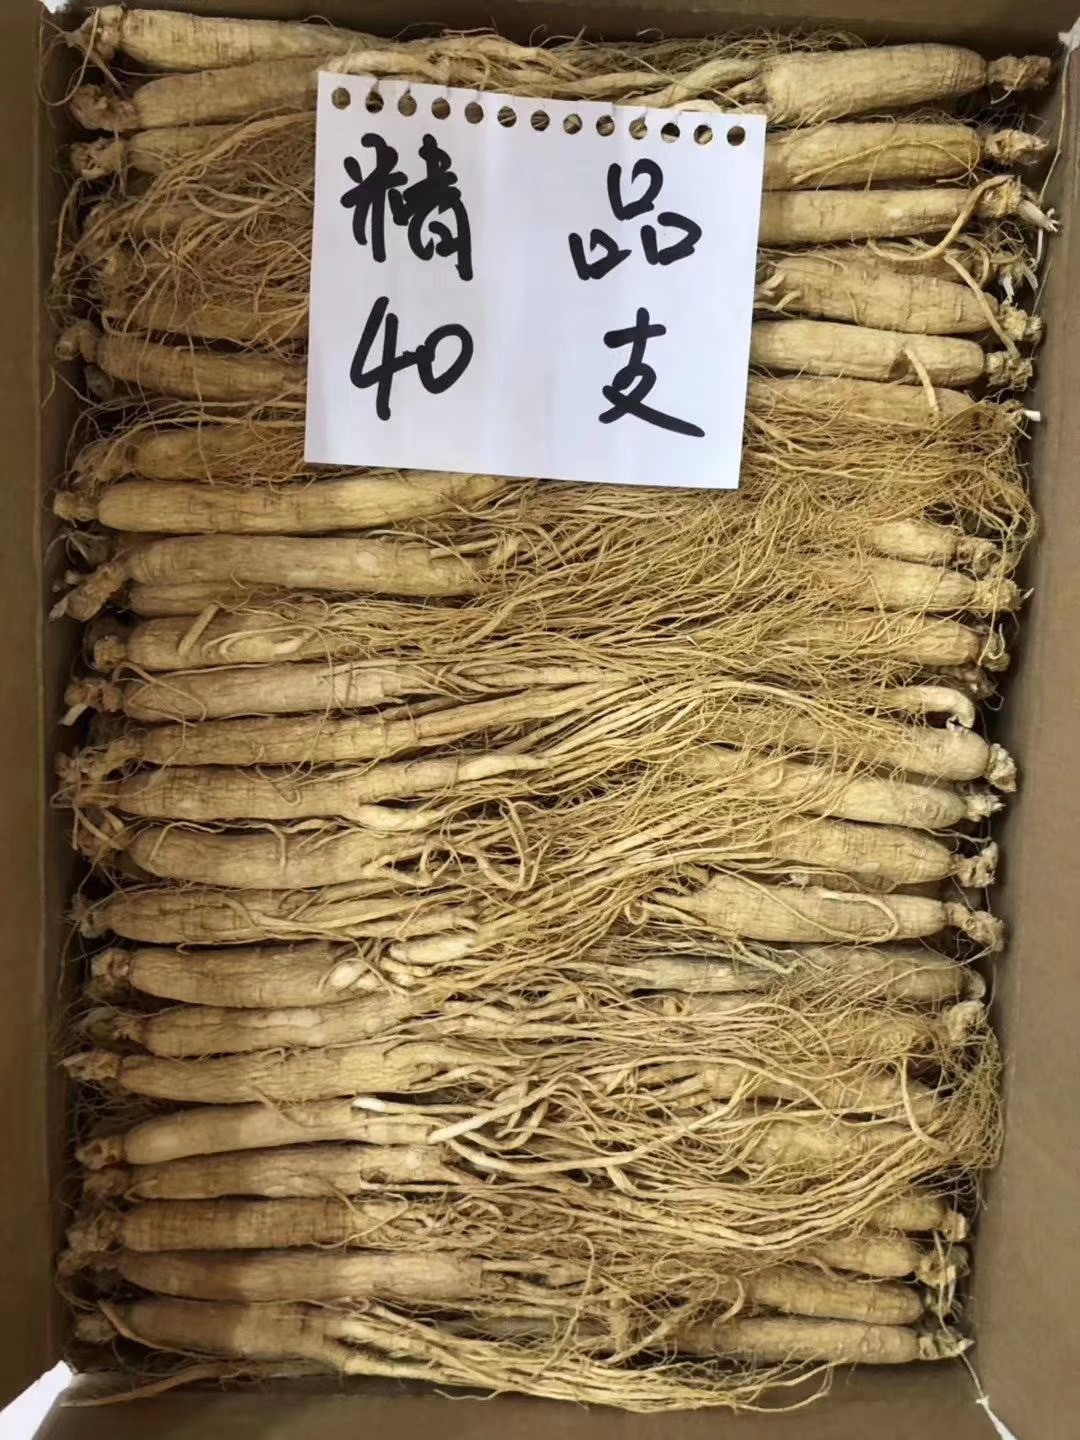 精品
40支